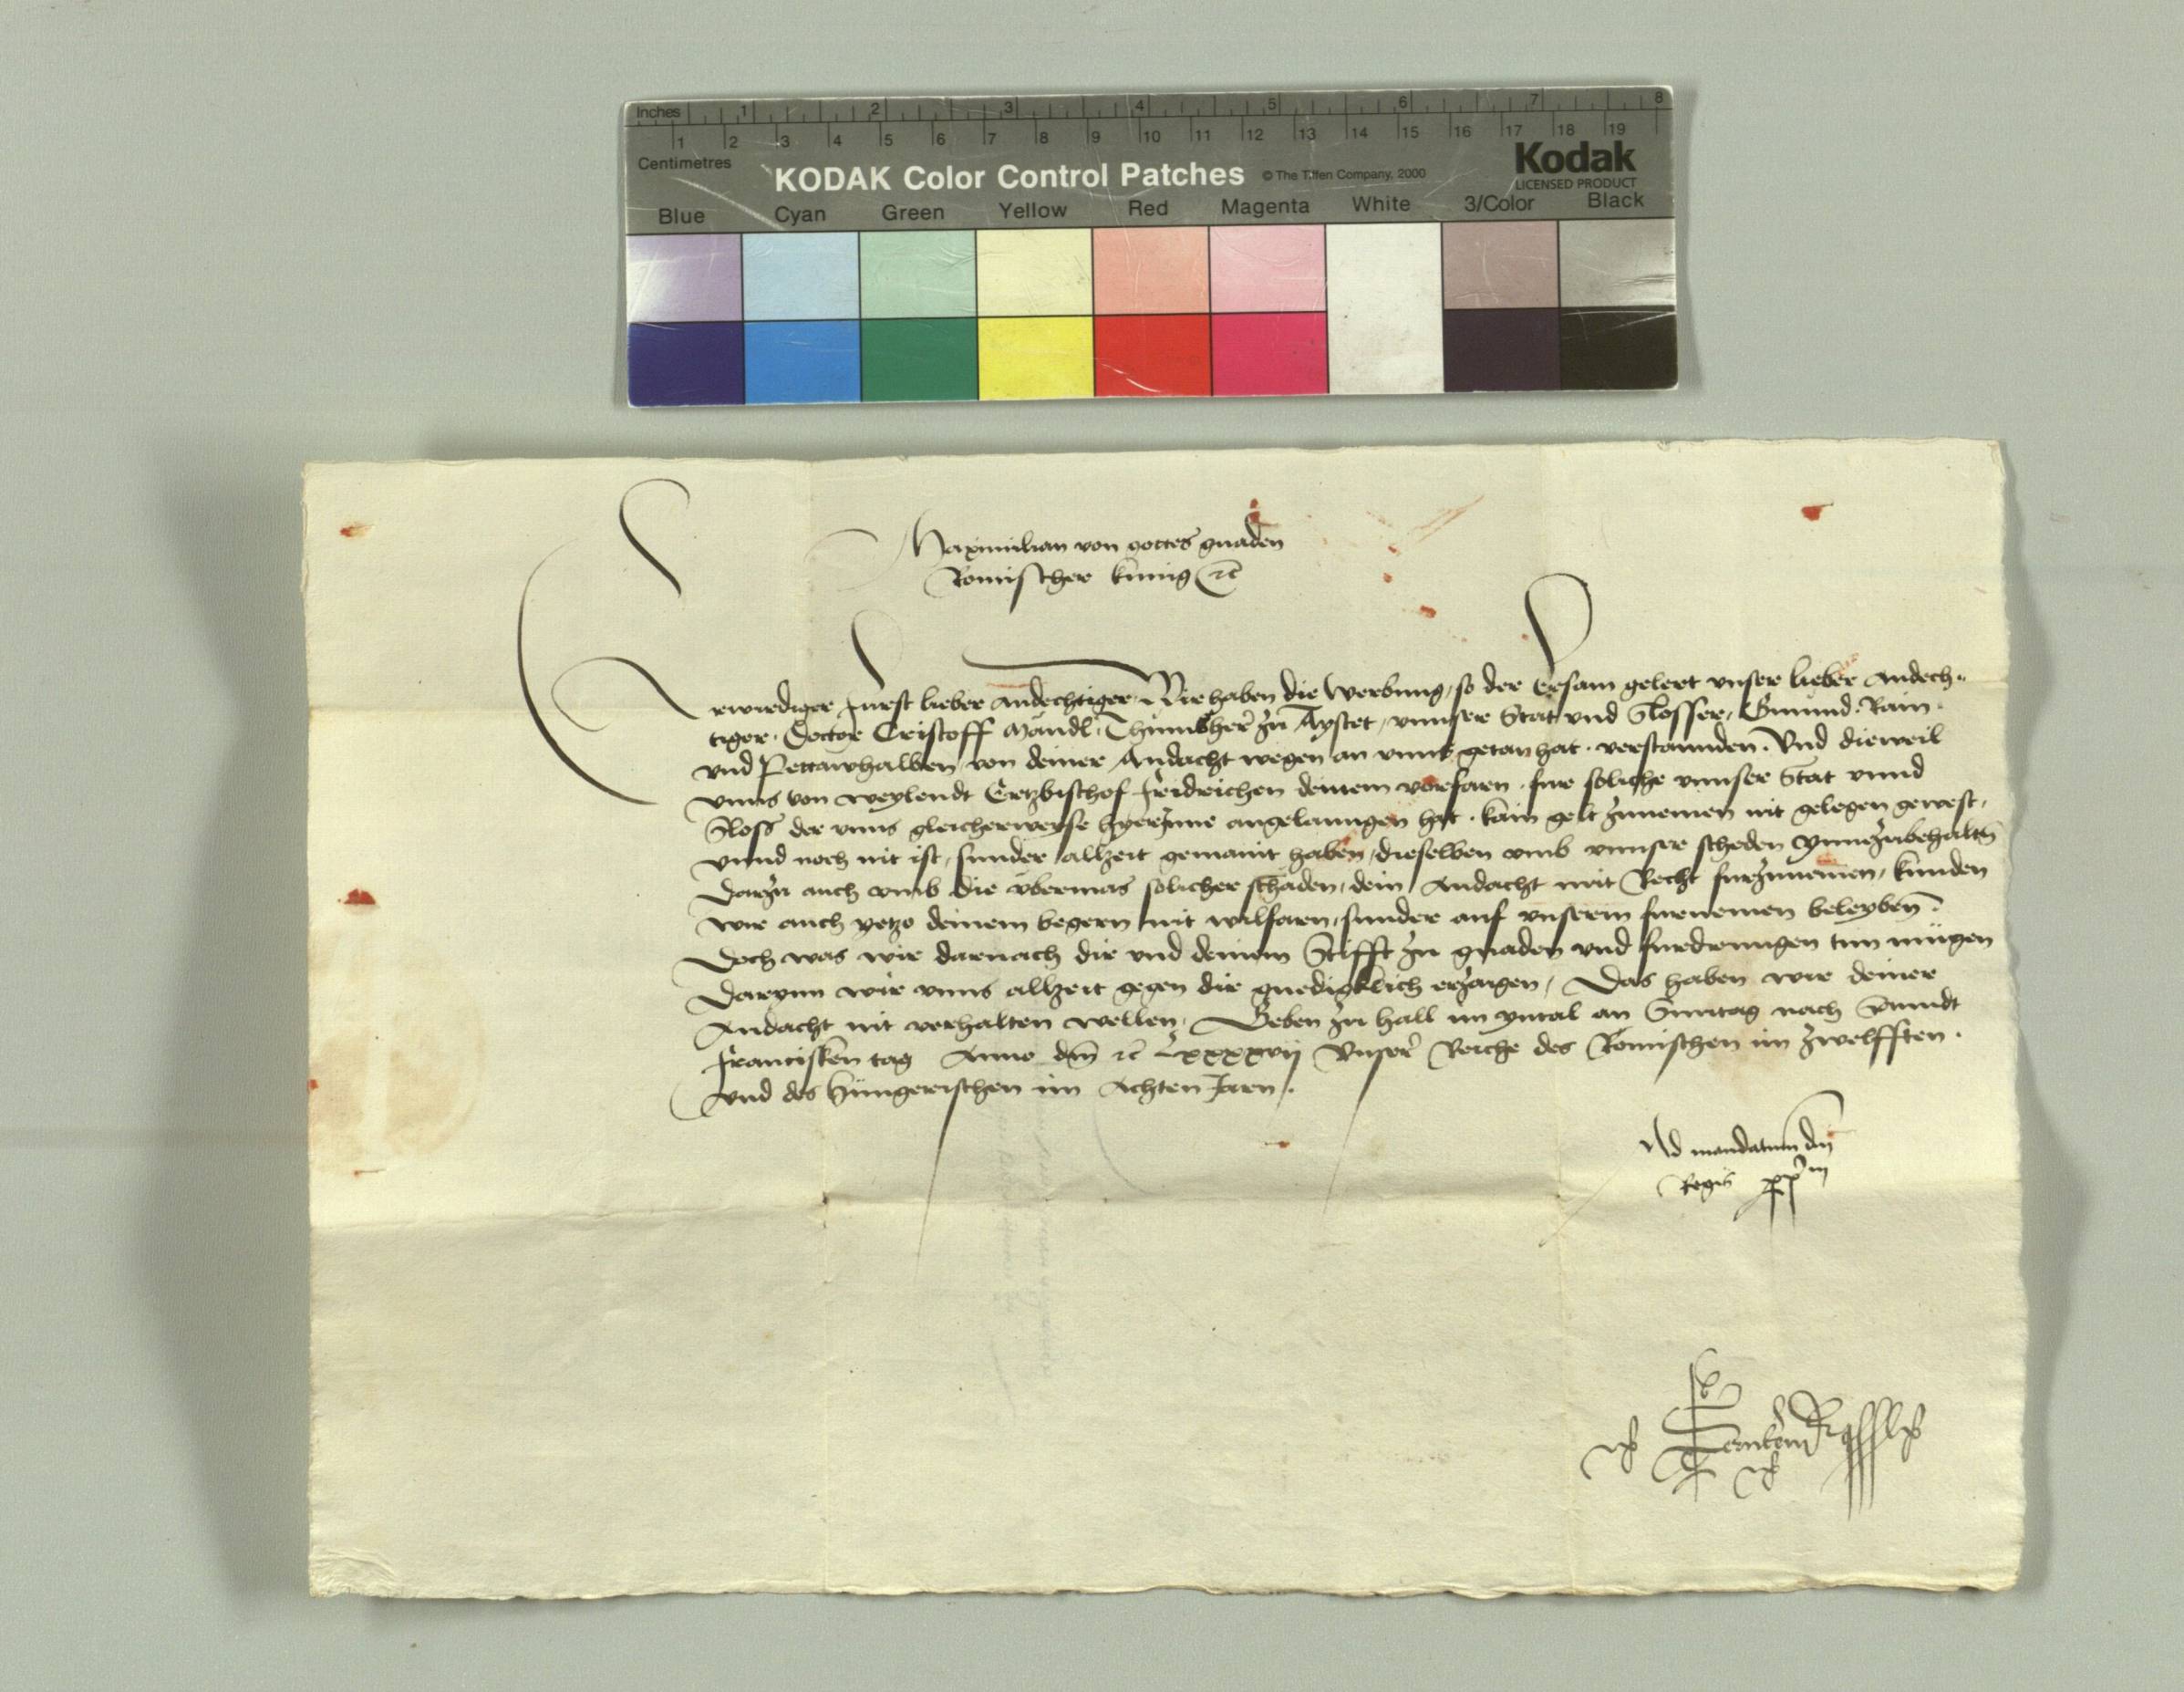 Inches 1 2 3 4 5 6 7 8
1 2 3 4 5 6 7 8 9 10 11 12 13 14 15 16 17 18 19
Centimetres
KODAK Color Control Patches © The Tiffen Company, 2000
Kodak
LICENSED PRODUCT
Blue Cyan Green Yellow Red Magenta White 3/Color Black
Maximilian von gottes gnaden
Romischer kunig ⁊c̃
Erwirdiger furst lieber andechtiger. Wir haben die werbung, so der Ersam gelert unser lieber andech=
tiger. Doctor Cristoff Mandl. Thumbher̃ zu Aystet, unnsere Stat und Slosser, Gmund. Rain.
und Pettawhalben von deiner Andacht wegen an unns getan hat. verstannden. Und dieweil
unns von weylendt Ertzbischof fridreichen deinem vorfaren. fur soliche unnser Stat unnd
Sloss der unns gleicherweyse hyerjnne angelanngen hat. kain gelt zunemen nit gelegen gewest,
unnd noch nit ist, sunder allzeit gemaint haben, dieselben umb unnser scheden ynnezubehaltn̄
Darzu auch umb die übermas solicher schaden, dein Andacht mit Recht furzunemen, kunden
wir auch yetzo deinem begern nit wilfaren, sunder auf unserm furnemen beleyben.
Doch was wir darnach dir und deinem Stifft zu gnaden und furdrungen tun mügen
Darynn wir unns allzeit gegen dir gnedigklich erzaigen, Das haben wir deiner
Andacht nit verhalten wellen, Geben zu hall im yntal an Suntag nach Sannd
Francisken tag Anno dm̄ ⁊c̃ Lxxxxvij Unser̃ Reiche des Romischen im zwelfften.
und des Hungerischen im Achten Jaren.
Ad mandatum dn̄j
Regis pp̄m